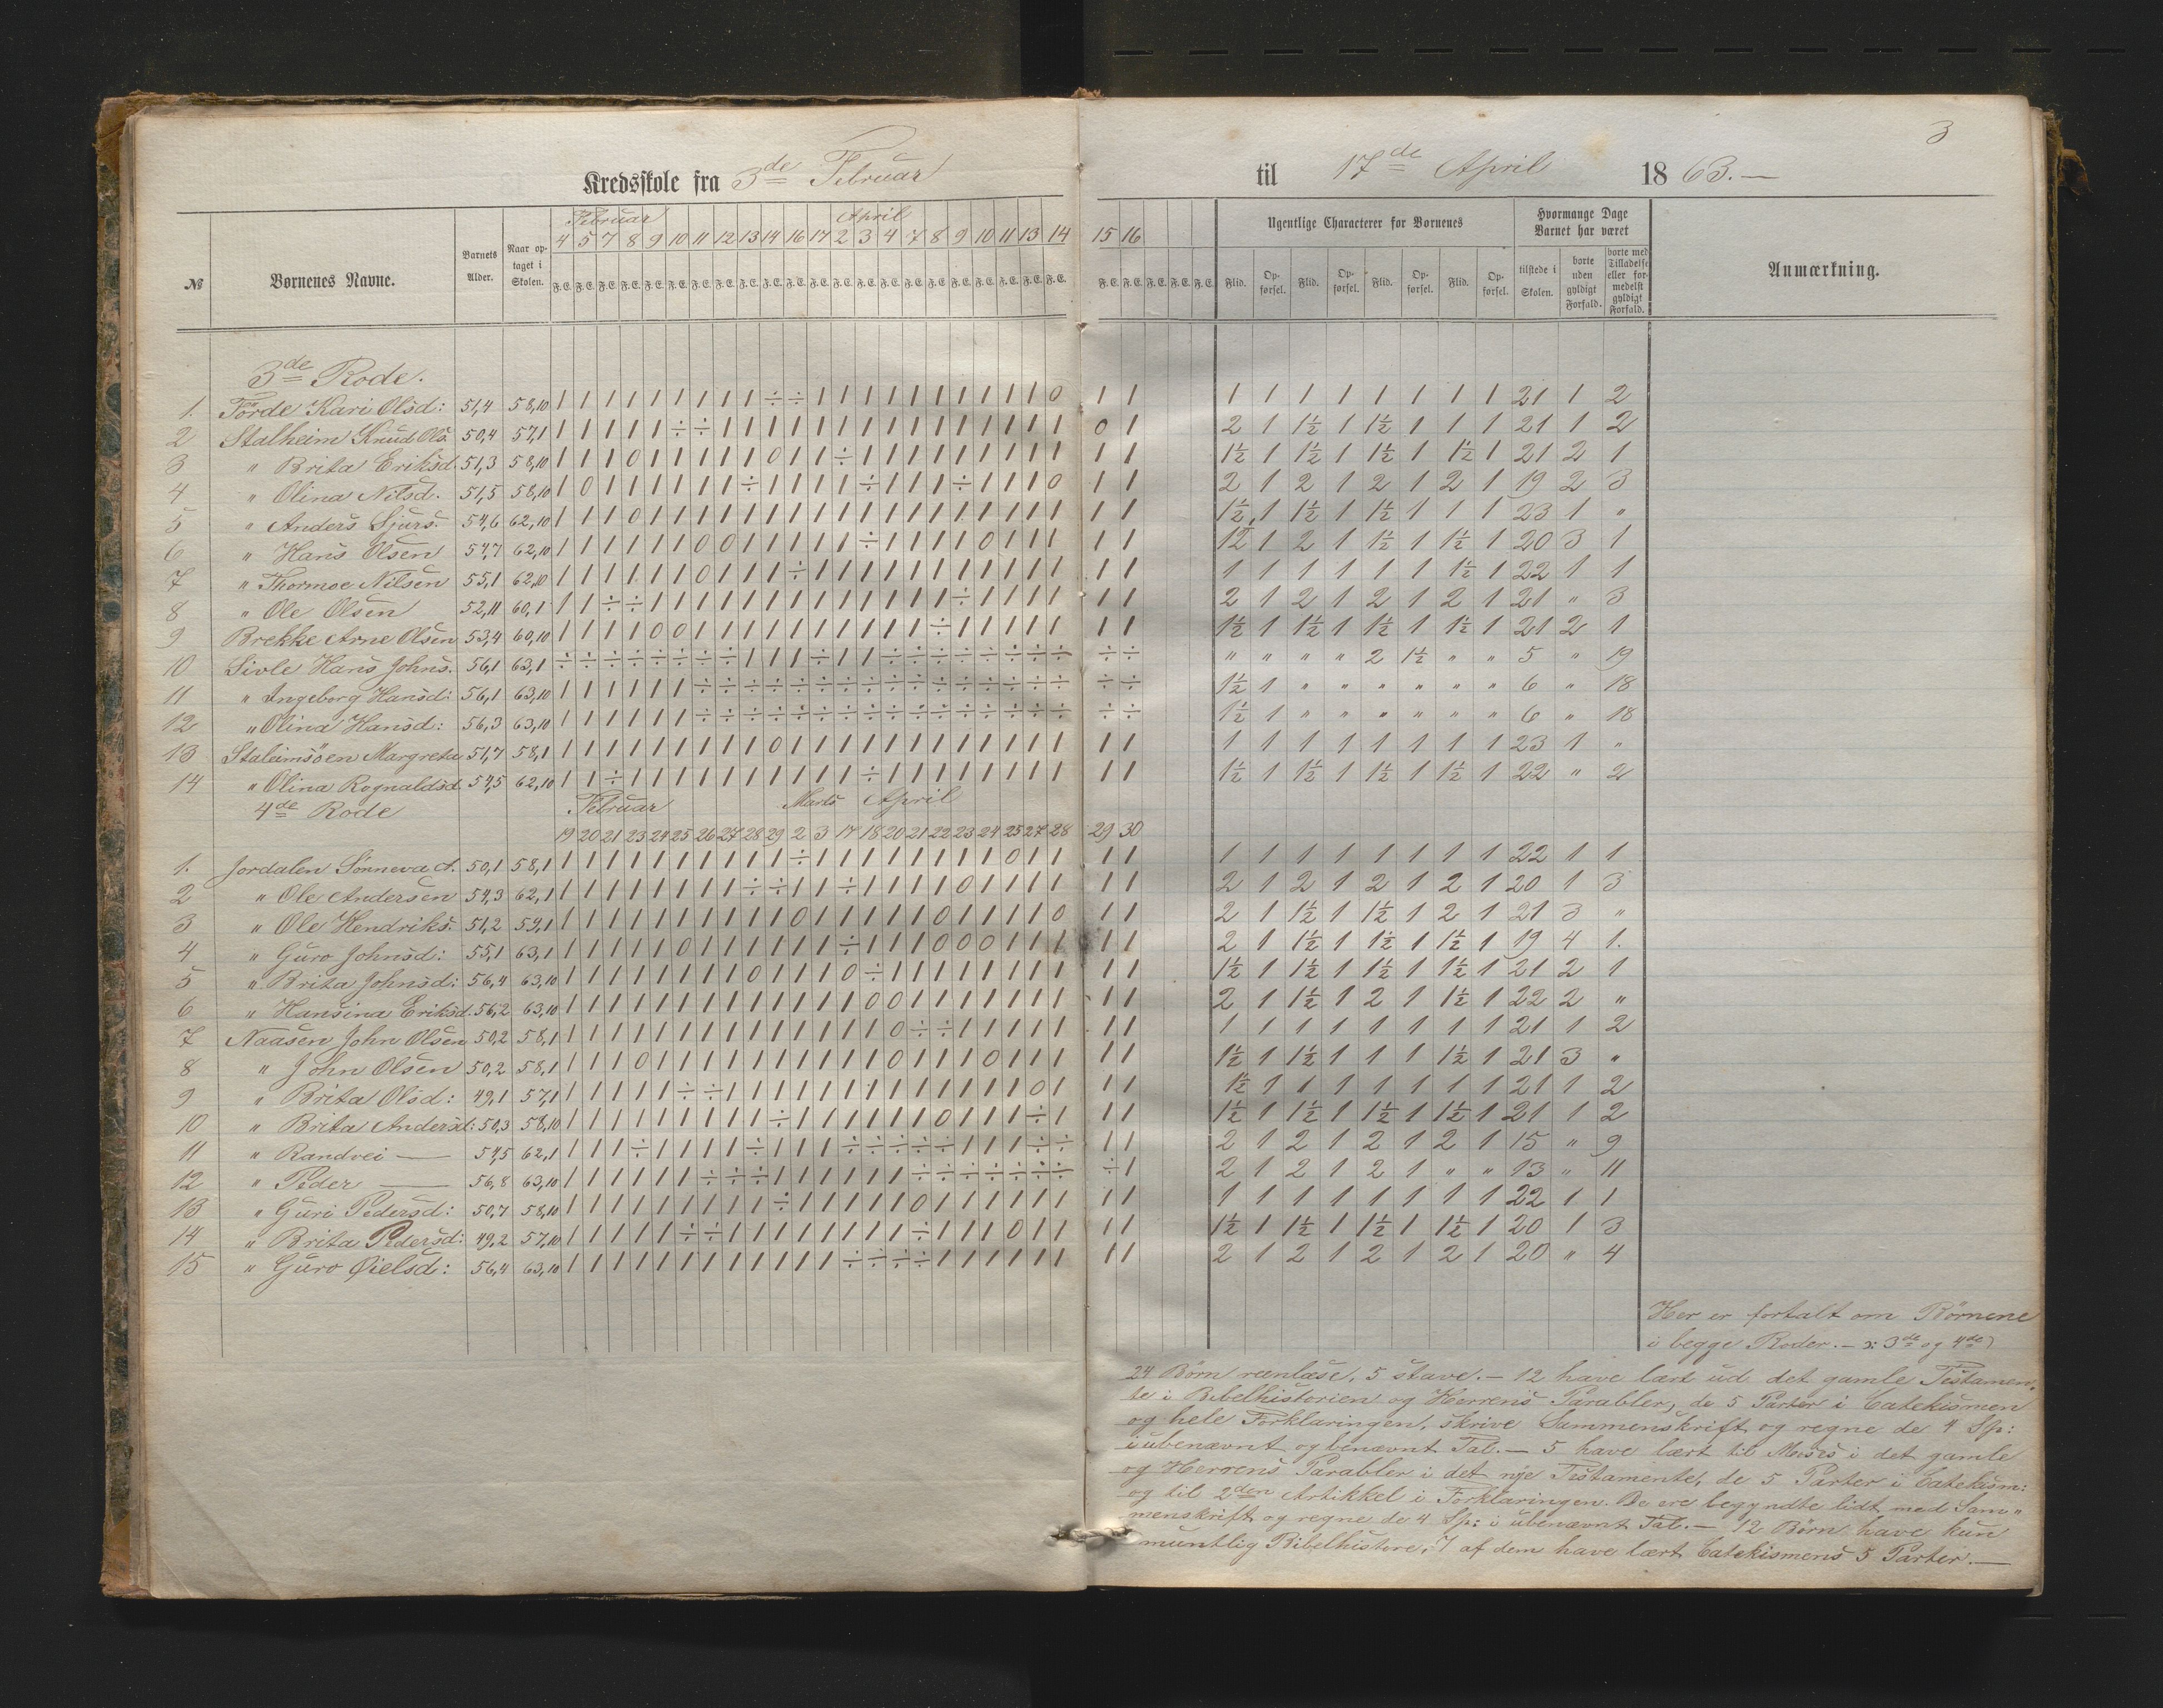 3
Kredsskole fra 3de Februar til 17de April 1863.—
№ Børnenes Navne. Barnets Alder. Naar optaget i Skolen. Februar April Ugentlige Characterer for Børnenes Hvormange Dage Barnet har været Anmærkning.
4 5 7 8 9 10 11 12 13 14 16 17 2 3 4 7 8 9 10 11 13 14 15 16
F. E. F. E. F. E. F. E. F. E. F. E. F. E. F. E. F. E. F. E. F. E. F. E. F. E. F. E. F. E. F. E. F. E. F. E. F. E. F. E. F. E. F. E. F. E. F. E. F. E. F. E. F. E. Flid. Opførsel. Flid. Opførsel. Flid. Opførsel. Flid. Opførsel. tilstede i Skolen. borte uden gyldigt Forfald. borte med Tilladelse eller formedelst gyldigt Forfald.
3de Rode.
1. Förde Kari Olsd: 51,4 58,10 1 1 1 1 1 1 1 1 1 ÷ ÷ 1 1 1 1 1 1 1 1 1 1 0 1 1 1 1 1 1 1 1 1 1 21 1 2
2 Stalheim Knud Ols. 50,4 57,1 1 1 1 1 1 ÷ ÷ 1 1 1 1 1 1 1 1 1 1 1 1 1 1 1 0 1 2 1 1½ 1 1½ 1 1 1 21 1 2
3 " Brita Eriksd. 51,3 58,10 1 1 1 0 1 1 1 1 1 0 1 1 ÷ 1 1 1 1 1 1 1 1 1 1 1 1½ 1 1½ 1 1½ 1 1½ 1 21 2 1
4 " Olina Nilsd. 51,5 58,10 1 0 1 1 1 1 1 1 ÷ 1 1 1 1 ÷ 1 1 1 ÷ 1 1 1 0 1 1 2 1 2 1 2 1 2 1 19 2 3
5 " Anders Sjurs. 54,6 62,10 1 1 1 0 1 1 1 1 1 1 1 1 1 1 1 1 1 1 1 1 1 1 1 1 1½ 1 1½ 1 1½ 1 1 1 23 1 "
6 " Hans Olsen 54,7 62,10 1 1 1 1 1 1 0 0 1 1 1 1 1 ÷ 1 1 1 1 0 1 1 1 1 1 1½ 1 2 1 1½ 1 1½ 1 20 3 1
7 " Thormoe Nilsen 55,1 62,10 1 1 1 1 1 1 0 1 1 1 ÷ 1 1 1 1 1 1 1 1 1 1 1 1 1 1 1 1 1 1 1 1½ 1 22 1 1
8 " Ole Olsen 52,11 60,1 1 1 ÷ ÷ 1 1 1 1 1 1 1 1 1 1 1 1 1 ÷ 1 1 1 1 1 1 2 1 2 1 2 1 2 1 21 " 3
9 Brekke Arne Olsen 53,4 60,10 1 1 1 1 0 0 1 1 1 1 1 1 1 1 1 1 ÷ 1 1 1 1 1 1 1 1½ 1 1½ 1 1½ 1 1½ 1 21 2 1
10 Sivle Hans Johns. 56,1 63,1 ÷ ÷ ÷ ÷ ÷ ÷ ÷ ÷ 1 1 1 ÷ 1 1 ÷ ÷ ÷ ÷ ÷ ÷ ÷ ÷ ÷ ÷ " " " " 2 1½ " " 5 " 19
11 " Ingeborg Hansd: 56,1 63,10 1 1 1 1 1 1 ÷ ÷ ÷ ÷ ÷ ÷ ÷ ÷ ÷ ÷ ÷ ÷ ÷ ÷ ÷ ÷ ÷ ÷ 1½ 1 " " " " " " 6 " 18
12 " Olina Hansd: 56,3 63,10 1 1 1 1 1 1 ÷ ÷ ÷ ÷ ÷ ÷ ÷ ÷ ÷ ÷ ÷ ÷ ÷ ÷ ÷ ÷ ÷ ÷ 1½ 1 " " " " " " 6 " 18
13 Staleimsöen Margreta 51,7 58,1 1 1 1 1 1 1 1 1 1 0 1 1 1 1 1 1 1 1 1 1 1 1 1 1 1 1 1 1 1 1 1 1 23 1 "
14 " Olina Rognaldsd. 54,5 62,10 1 1 ÷ 1 1 1 1 1 1 1 1 1 1 ÷ 1 1 1 1 1 1 1 1 1 1 1½ 1 1½ 1 1½ 1 1½ 1 22 " 2
4de Rode Februar Marts April
19 20 21 23 24 25 26 27 28 29 2 3 17 18 20 21 22 23 24 25 27 28 29 30
1. Jordalen Sönneva A. 50,1 58,1 1 1 1 1 1 1 1 1 1 1 ÷ 1 1 1 1 1 1 1 1 0 1 1 1 1 1 1 1 1 1 1 1 1 22 1 1
2 " Ole Andersen 54,3 62,1 1 1 1 1 1 1 1 1 ÷ ÷ 1 1 ÷ 1 1 1 1 0 1 1 1 1 1 1 2 1 2 1 2 1 2 1 20 1 3
3 " Ole Hendriks. 51,2 59,1 1 1 1 1 1 1 1 1 1 1 0 1 1 1 1 1 0 1 1 1 1 0 1 1 2 1 1½ 1 1½ 1 2 1 21 3 "
4 " Guro Johnsd: 55,1 63,1 1 1 1 1 1 0 1 1 1 1 1 1 ÷ 1 1 1 0 0 0 1 1 1 1 1 2 1 1½ 1 1½ 1 1½ 1 19 4 1.
5 " Brita Johnsd: 56,4 63,10 1 1 1 1 1 1 1 1 0 1 1 1 0 ÷ 1 1 1 1 1 1 1 1 1 1 1½ 1 1½ 1 1½ 1 1½ 1 21 2 1
6 " Hansina Eriksd. 56,2 63,10 1 1 1 1 1 1 1 1 1 1 1 1 1 0 0 1 1 1 1 1 1 1 1 1 2 1 1½ 1 2 1 1½ 1 22 2 "
7 Naasen John Olsen 50,2 58,1 1 1 1 1 1 1 1 1 1 1 1 1 1 1 0 ÷ ÷ 1 1 1 1 1 1 1 1 1 1 1 1 1 1 1 21 1 2
8 " John Olsen 50,2 58,1 1 1 1 0 1 1 1 1 1 1 1 1 1 1 0 1 1 1 0 1 1 1 1 1 1½ 1 1½ 1 1 1 1½ 1 21 3 "
9 " Brita Olsd: 49,1 57,1 1 1 1 1 1 ÷ ÷ 1 1 1 1 1 1 1 1 1 1 1 1 1 0 1 1 1 1½ 1 1 1 1 1 1 1 21 1 2
10 " Brita Andersd: 50,3 58,10 1 1 1 1 1 1 1 1 1 ÷ 1 1 1 1 1 1 0 1 1 1 ÷ 1 1 1 1½ 1 1½ 1 1½ 1 1½ 1 21 1 2
11 " Randvei — 54,5 62,1 1 1 1 ÷ 1 1 1 1 ÷ 1 1 1 ÷ ÷ ÷ ÷ ÷ 1 1 1 ÷ ÷ 1 1 2 1 2 1 2 1 2 1 15 " 9
12 " Peder — 56,8 63,10 1 1 1 1 1 1 ÷ ÷ ÷ 1 1 1 1 1 1 ÷ ÷ ÷ ÷ ÷ ÷ ÷ ÷ 1 2 1 2 1 2 1 " " 13 " 11
13 " Guri Pedersd: 50,7 58,10 1 1 1 1 1 1 1 1 1 ÷ 1 1 1 1 1 0 1 1 1 1 1 1 1 1 1 1 1 1 1 1 1 1 22 1 1
14 " Brita Pedersd: 49,2 57,10 1 1 1 1 1 ÷ ÷ 1 1 1 1 1 1 1 1 ÷ 1 1 1 0 1 1 1 1 1½ 1 1½ 1 1½ 1 1½ 1 20 1 3
15 " Guro Øielsd: 56,4 63,10 1 1 1 1 1 1 1 1 1 1 1 1 ÷ ÷ ÷ ÷ 1 1 1 1 1 1 1 1 2 1 2 1 2 1 2 1 20 " 4
Her er fortalt om Börnene
i begge Roder. — ɔ: 3de og 4de)
24 Børn renlæse, 5 stave. — 12 have lært ud det gamle Testamen,
te i Bibelhistorien og Herrens Parabler, de 5 Parter i Catekismen
og hele Forklaringen, skrive Sammenskrift og regne de 4 Sp:
i ubenævnt og benævnt Tal. — 5 have lært til Moses i det gamle
og Herrens Parabler i det nye Testamente, de 5 Parter i Catekism:
og til 2den Artikkel i Forklaringen. De ere begyndte lidt med Sam„
menskrift og regne de 4 Sp: i ubenævnt Tal. — 12 Børn have kun
muntlig Bibelhistore, 7 af dem have lært Catekismens 5 Parter. —